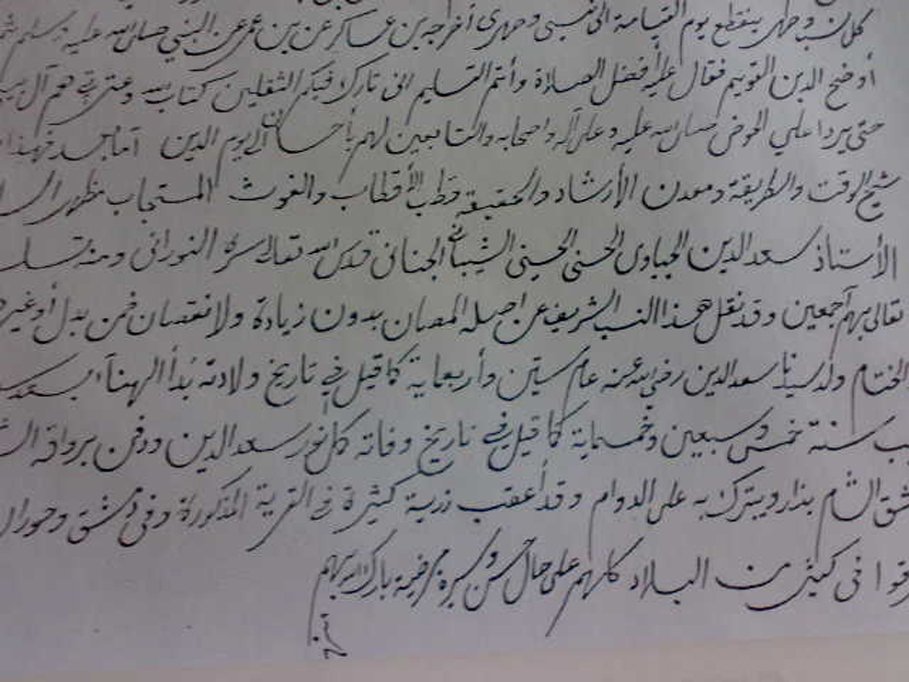 كل نسب وصهر ينقطع يوم القيامة الى نسبي وصهري أخرجه بن عساكر عن بن عمر عن النبي صلى الله عليه وسلم
أوضح الدين القويم فقال عليه أفضل الصلاة وأتم التسليم انى تارك فيكم الثقلين كتاب الله وعترتي فهم آل
حتى يردا علي الحوض صلى الله عليه وعلى آله واصحابه والتابعين لهم بأحسان الى يوم الدين أما بعد فهذا
شيخ الوقت والطريقة ومعدن الأرشاد والحقيقة قطب الأقطاب والغوث المستجاب مظهر
الأستاذ سعد الدين الجباوى الحسنى الحسينى الشيبانى الجنانى قدس الله تعالى سره النورانى ومنه
تعالى بهم آجمعين وقد نقل هذا النسب الشريف عن اصله المصان بدون زيادة ولا نقصان فمن بدل أو غير
الختام ولد سيدنا سعد الدين رضي الله عنه عام ستين وأربعماية كما قيل في تاريخ ولادته بُدأ الهنآء بسعد
سنة خمس وسبعين وخمسماية كما قيل في تاريخ وفاته كمل نور سعد الدين ودفن برواقه
الشام يزار ويتبرك به على الدوام وقد أعقب ذرية كثيرة في القرية المذكورة وفى دمشق وحوران
فى كثير من البلاد كلهم على حال حسن وسيرة مرضية بارك الله بهم